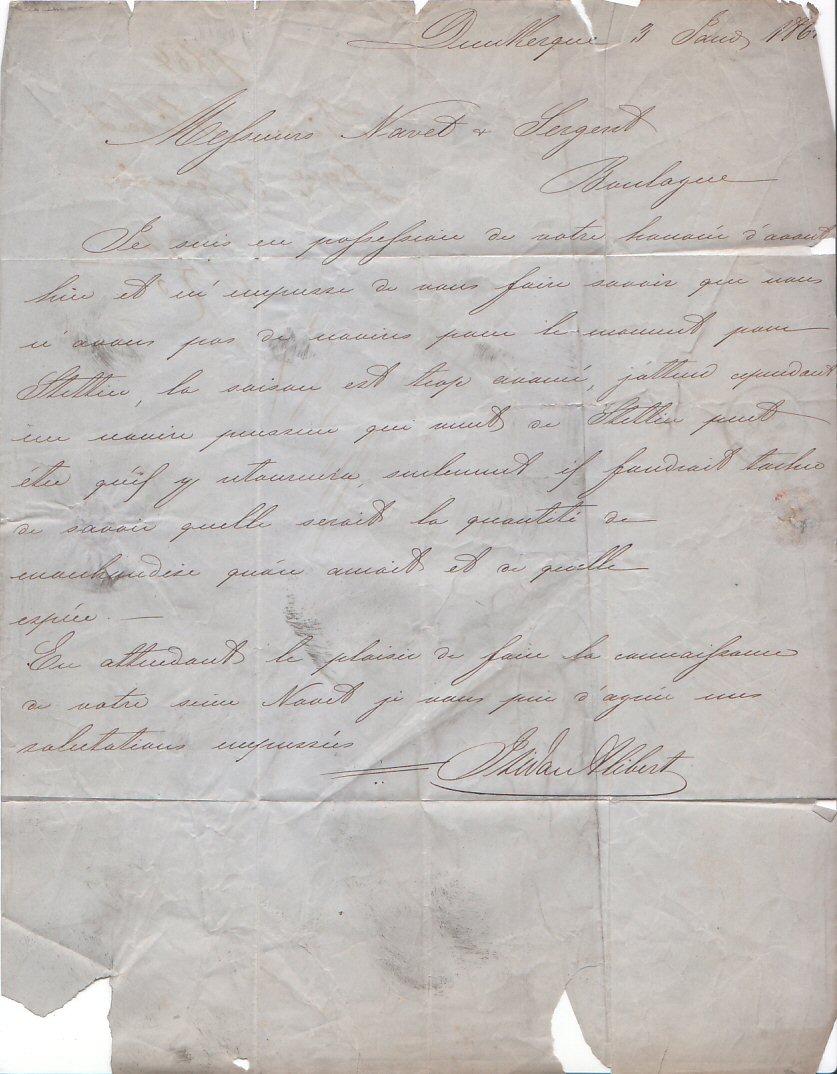 Dunkerque 3 Janv 186
Messieurs Navet & Sergent
Boulogne
Je suis en possession de votre honorée d'avant
hier et m'empresse de vous faire savoir que nous
n'avons pas de navires pour le moment pour
Stettin, la saison est trop avancé, j'attend cependant
un navire prussien qui vient de Stettin peut
être qu'il y retournera, seulement il faudrait tacher
de savoir quelle serait la quantité de
marchandise qu'on aurait et de quelle
espèce. —
En attendant le plaisir de faire la connaissance
de votre sieur Navet je vous prie d'agréer mes
salutations empressées